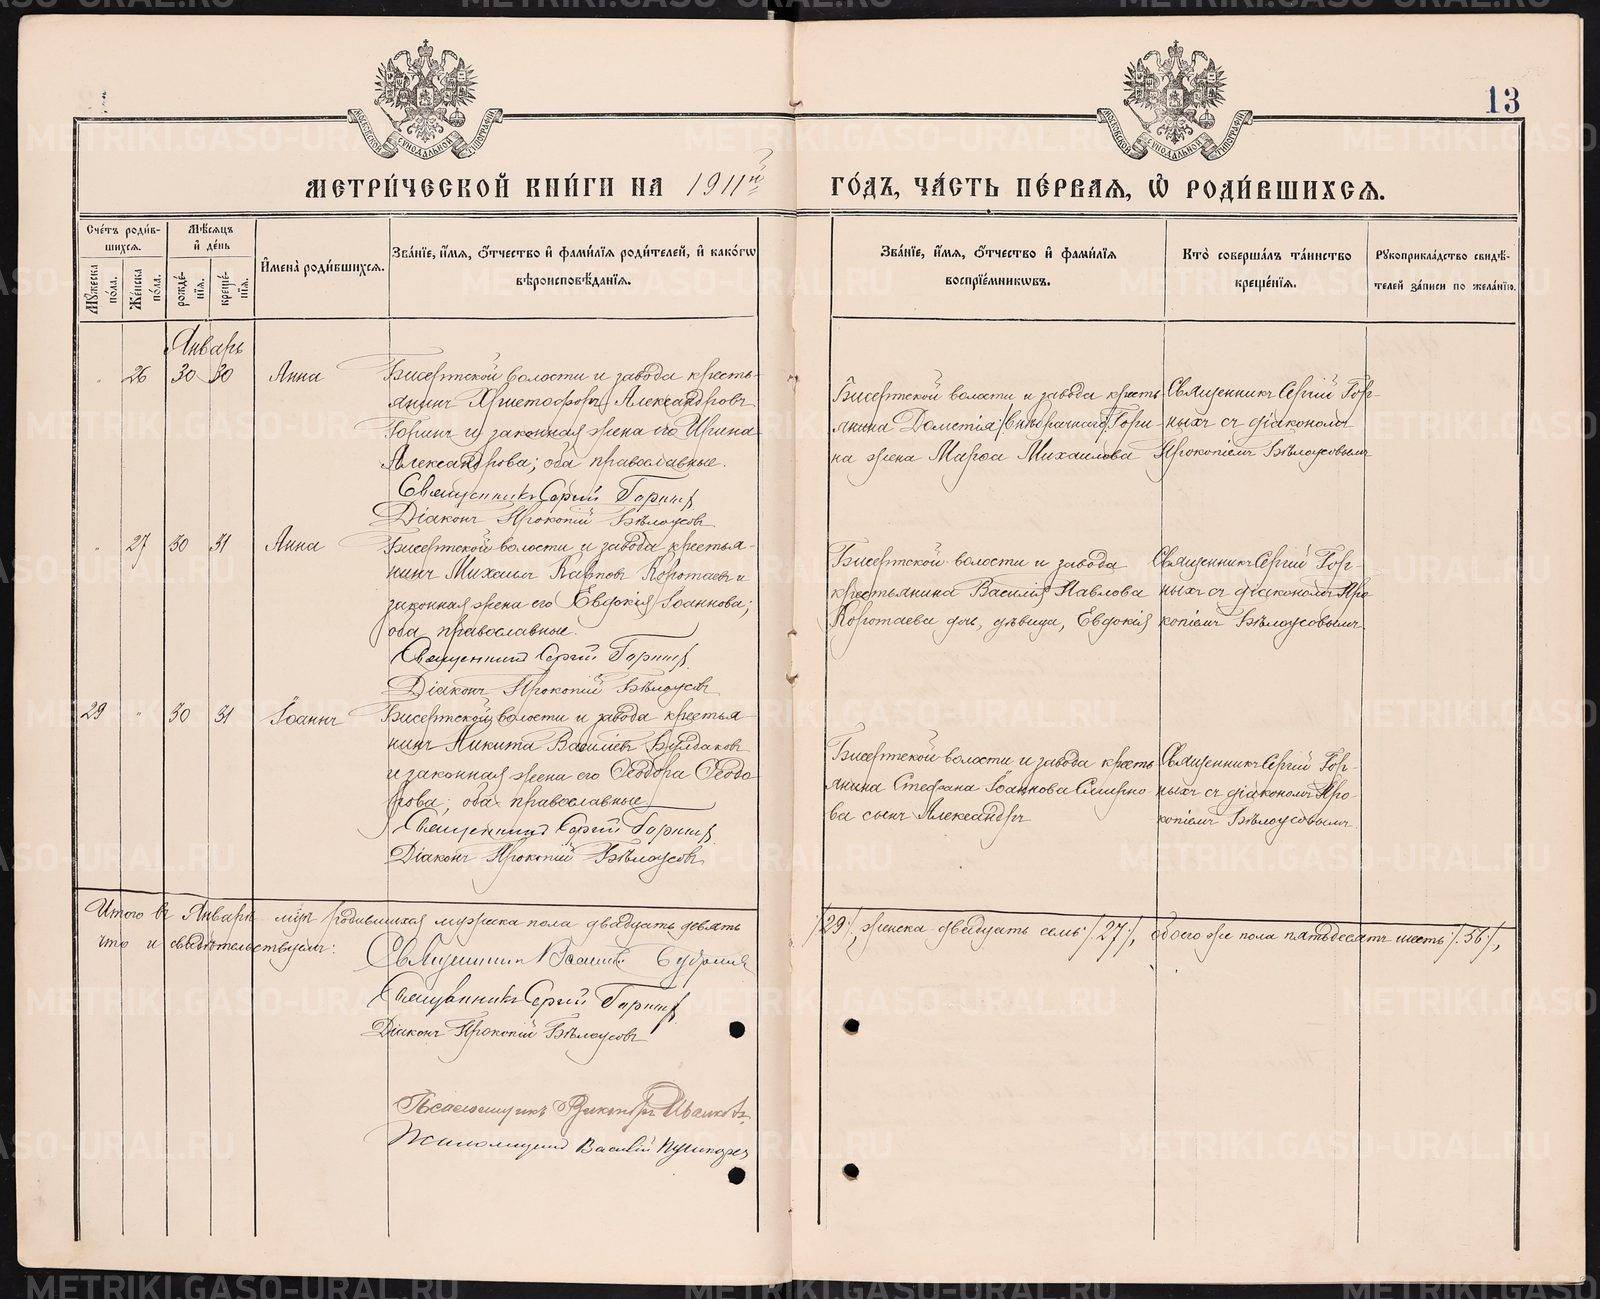 13
МОСКОВСКОЙ СѴНОДАЛЬНОЙ ТИПОГРАФІИ
МОСКОВСКОЙ СѴНОДАЛЬНОЙ ТИПОГРАФІИ
МЕТРИ́ЧЕСКОЙ КНИ́ГИ НА 1911й ГО́ДЪ, ЧА́СТЬ ПЕ́РВАѦ, Ѡ҆ РОДИ́ВШИХСѦ.
Сче́тъ роди́в-
шихсѧ.
Мꙋ́жеска по́ла.
Же́нска по́ла.
Мѣ́сѧцъ
и҆ де́нь
рожде́-
нїѧ.
креще́-
нїѧ.
И҆мена̀ роди́вшихсѧ.
Зва́нїе, и҆́мѧ, ѻ҆́тчество и҆ фами́лїѧ роди́телей, и҆ како́гѡ
вѣроисповѣ́данїѧ.
Зва́нїе, и҆́мѧ, ѻ҆́тчество и҆ фами́лїѧ
воспрїе́мникѡвъ.
Кто̀ соверша́лъ та́инство
креще́нїѧ.
Рꙋкоприкла́дство свидѣ́-
телей за́писи по жела́нїю.
Январь
" 26 30 30 Анна
Бисертской волости и завода кресть-
янинъ Христофоръ Александровъ
Горинъ и законная жена его Ирина
Александрова; оба православные.
Священникъ Сергій Горныхъ
Діаконъ Прокопій Бѣлоусовъ
Бисертской волости и завода кресть-
янина Дометія /Внѣбрачнаго/ Гори-
на жена Марѳа Михаилова
Священникъ Сергій Гор-
ныхъ съ діакономъ
Прокопіемъ Бѣлоусовымъ
" 27 30 31 Анна
Бисертской волости и завода крестья-
нинъ Михаилъ Карповъ Коротаевъ и
законная жена его Евдокія Іоаннова;
оба православные.
Священникъ Сергій Горныхъ
Діаконъ Прокопій Бѣлоусовъ
Бисертской волости и завода
крестьянина Василія Павлова
Коротаева дочь, дѣвица, Евдокія
Священникъ Сергій Гор-
ныхъ съ діакономъ Про
копіемъ Бѣлоусовымъ
29 " 30 31 Іоаннъ
Бисертской волости и завода крестья-
нинъ Никита Василіевъ Булдаковъ
и законная жена его Ѳеодора Ѳеодо
рова; оба православные
Священникъ Сергій Горныхъ
Діаконъ Прокопій Бѣлоусовъ
Бисертской волости и завода кресть
янина Стефана Іоаннова Смирно
ва сынъ Александръ
Священникъ Сергій Гор-
ныхъ съ діакономъ Про-
копіемъ Бѣлоусовымъ
Итого въ Январѣ м-цѣ родившихся мужска пола двадцать девять /29/, женска двадцать семь /27/, обоего же пола пятьдесятъ шесть /56/,
что и свидѣтельствуемъ:
Священникъ
Священникъ Сергій Горныхъ
Діаконъ Прокопій Бѣлоусовъ
Псаломщикъ Викторъ Ивановъ
Псаломщикъ Василій
METRIKI.GASO-URAL.RU